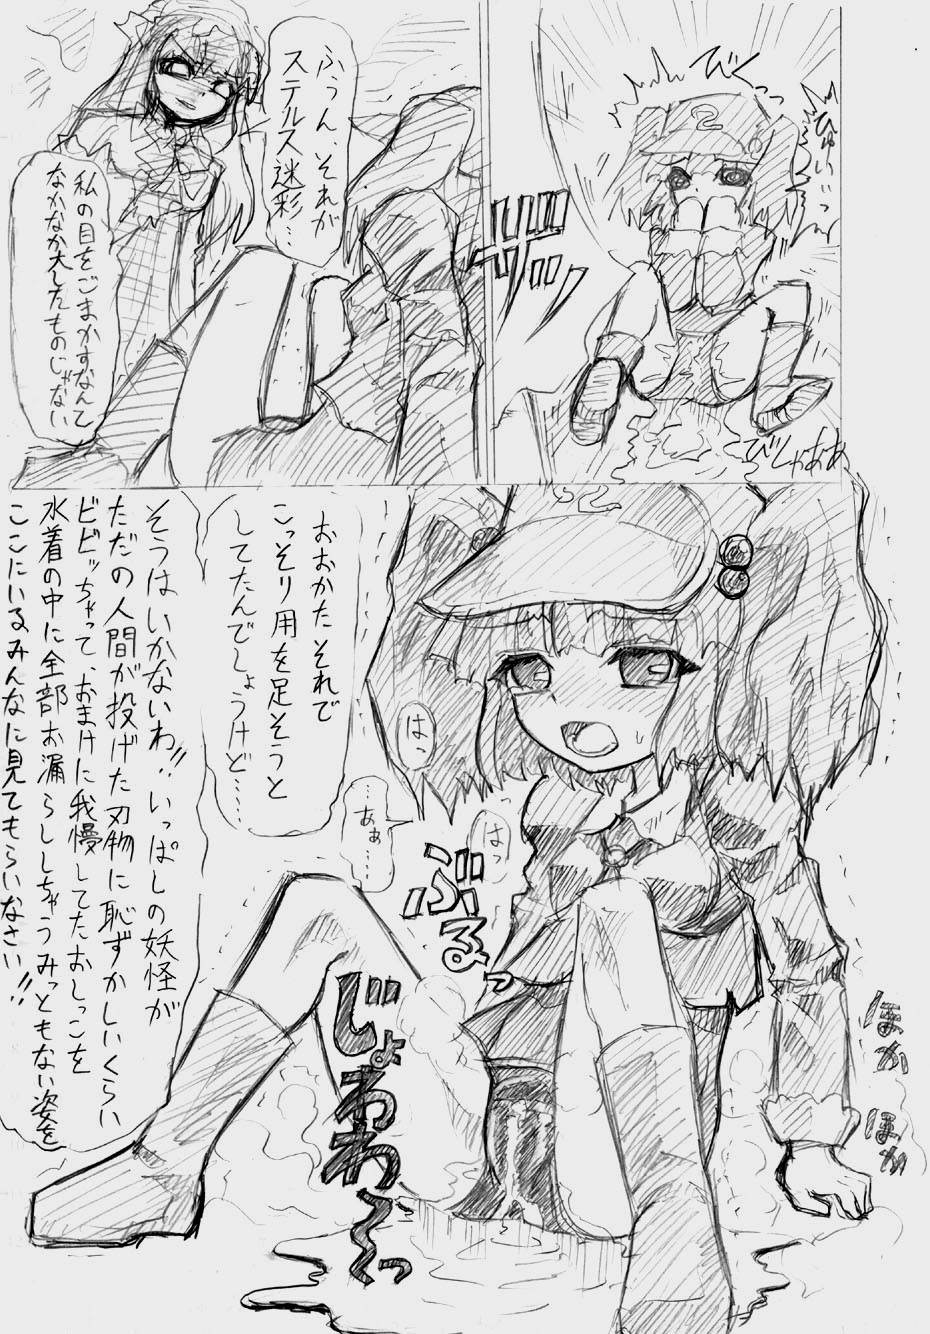 びくっ
ひゅいいっ
2
ザザッ
びしゃあぁ
ふうん、それが
ステルス迷彩…
私の目をごまかすなんて
なかなか大したものじゃない
おおかたそれで
こっそり用を足そうと
してたんでしょうけど……
そうはいかないわ!!いっぱしの妖怪が
ただの人間が投げた刃物に恥ずかしいくらい
ビビッちゃって、おまけに我慢してたおしっこを
水着の中に全部お漏らししちゃうみっともない姿を
ここにいるみんなに見てもらいなさい!!
はっ
はっ
…あぁ…
ぶるっ
じょわわ~~っ
ほか
ほか